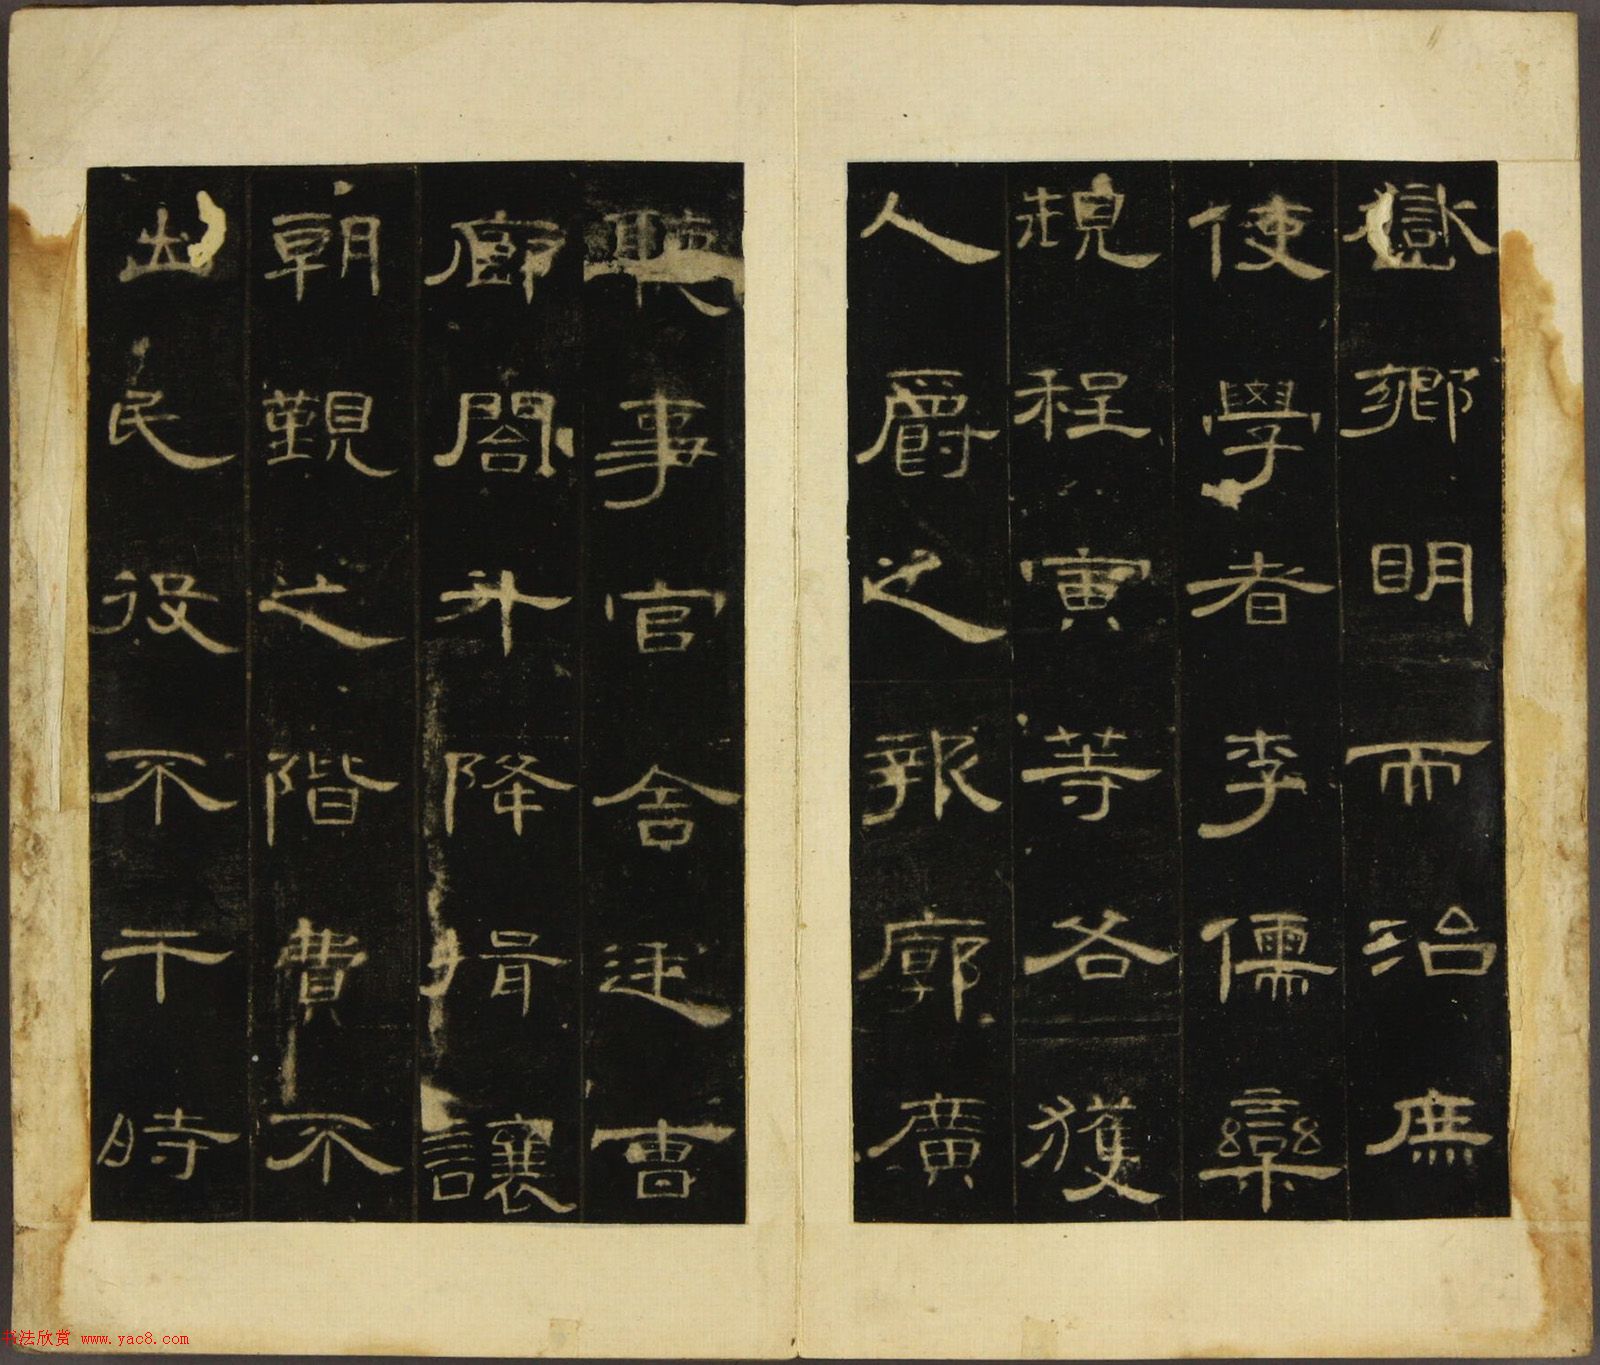 嶽鄉明而治庶
使學者李儒欒
規程寅等各獲
人爵之報廓廣
聽事官舍廷曹
廊閤升降揖讓
朝覲之階費不
出民役不干時
书法欣赏 www.yac8.com